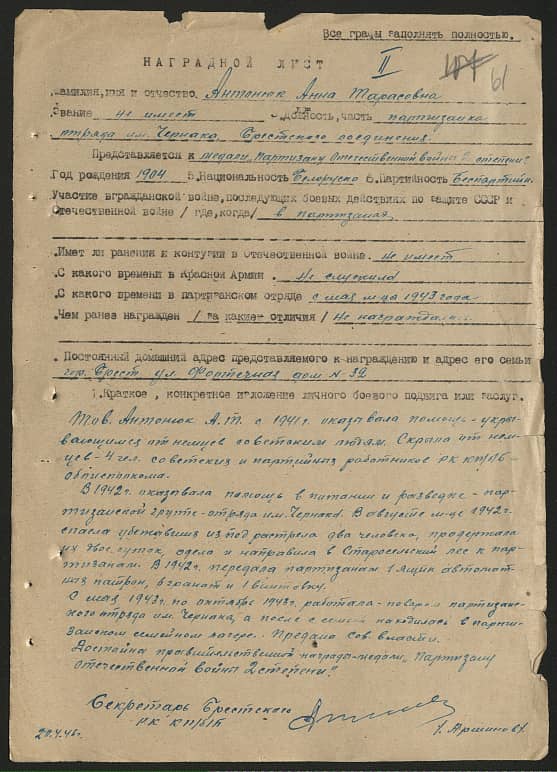 Все графы заполнять полностью.
НАГРАДНОЙ ЛИСТ
II
61
Фамилия, имя и отчество Антонюк Анна Тарасовна
Звание не имеет Должность, часть партизанка
отряда им. Чернака, Брестского соединения.
Представляется к медали „Партизану Отечественной Война 2 степени"
Год рождения 1904 5. Национальность Белоруско 6. Партийность Беспартийн.
Участие в гражданской войне, последующих боевых действиях по защите СССР и
Отечественной войне / где, когда/ в партизанах
. Имет ли ранения и контузии в отечественной войне. не имеет
. С какого времени в Красной Армии . Не служила
. С какого времени в партизанском отряде с мая м-ца 1943 года
. Чем ранее награжден / за какие отличия / Не награждал..
. Постоянный домашний адрес представляемого к награждению и адрес его семьи
гор. Брест ул. Фортечная дом № 32
1. Краткое , конкретное изложение личного боевого подвига или заслуг.
Тов. Антонюк А.Т. с 1941г оказывала помощь - укры-
вающимся от немцев советским людям. Скрыла от нем-
цев - 4 чел. советских и партийных работников РК КП/б/Б -
облисполкома.
В 1942г. оказывала помощь в питании и разведке - пар-
тизанской группе - отряда им. Чернака. В августе м-це 1942г.
спасла убежавших из под растрела два человека, продержала
их двое суток, одела и направила в Старосельский лес к пар-
тизанам. В 1942г. передала партизанам 1 ящик автомат-
ных патрон, 8 гранат и 1 винтовку.
С мая 1943г. по октябрь 1943г. работала - поваром партизанс-
кого отряда им. Чернака, а после с семьей находилась в парти-
занском семейном лагере. Предана Сов власти.
Достойна правительственной награды - медали „Партизану
Отечественной Войны 2 степени"
Секретарь Брестского
РК КП/б/Б
/. Аршинов/.